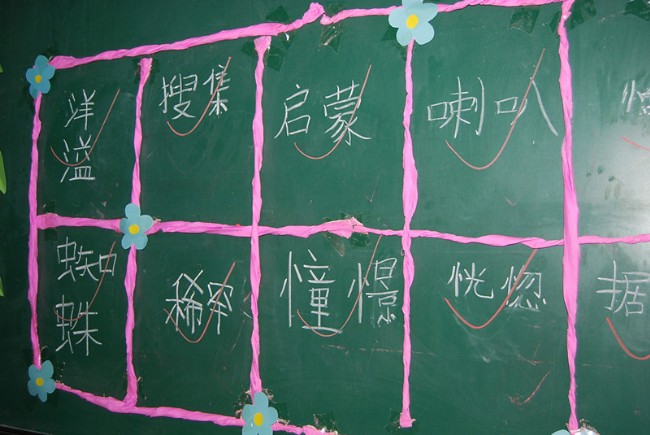 洋溢
搜集
启蒙
喇叭
蜘蛛
稀罕
憧憬
恍惚
据